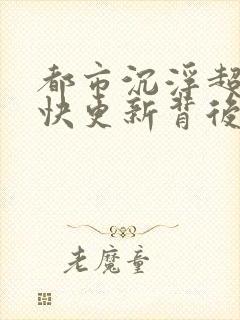 都市沉浮超
快更新背後
老魔童